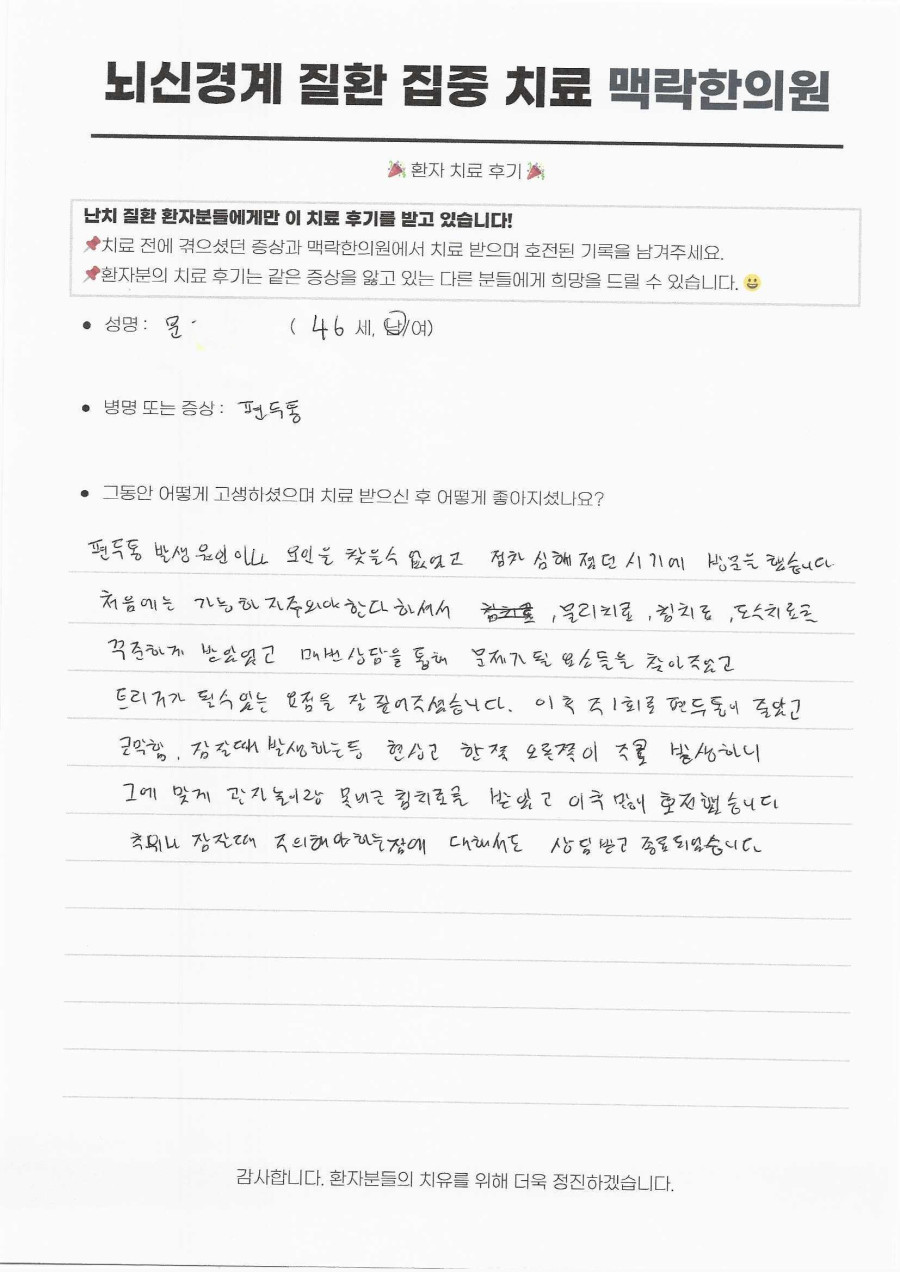 뇌신경계 질환 집중 치료 맥락한의원
🎉 환자 치료 후기 🎉
난치 질환 환자분들에게만 이 치료 후기를 받고 있습니다!
📌치료 전에 겪으셨던 증상과 맥락한의원에서 치료 받으며 호전된 기록을 남겨주세요.
📌환자분의 치료 후기는 같은 증상을 앓고 있는 다른 분들에게 희망을 드릴 수 있습니다. 😀
• 성명 : 문 ( 46 세, 남/여)
• 병명 또는 증상 : 편두통
• 그동안 어떻게 고생하셨으며 치료 받으신 후 어떻게 좋아지셨나요?
편두통 발생 원인이나 요인을 찾을수 없었고 점차 심해졌던 시기에 방문을 했습니다
처음에는 가능한 자주와야 한다 하셔서 침치료 , 물리치료 , 침치료 , 도수치료를
꾸준하게 받았었고 매번 상담을 통해 문제가 될 요소들을 찾아주었고
트리거가 될수있는 요점을 잘 짚어주셨습니다. 이후 주1회로 편두통이 줄었고
코막힘, 잠잘때 발생하는등 현상고 한쪽 오른쪽이 주로 발생하니
그에 맞게 관자놀이랑 뒷비근 침치료를 받았고 이후 많이 호전했습니다
추위나 잠잘때 주의해야하는점에 대해서도 상담받고 종료되었습니다.
감사합니다. 환자분들의 치유를 위해 더욱 정진하겠습니다.